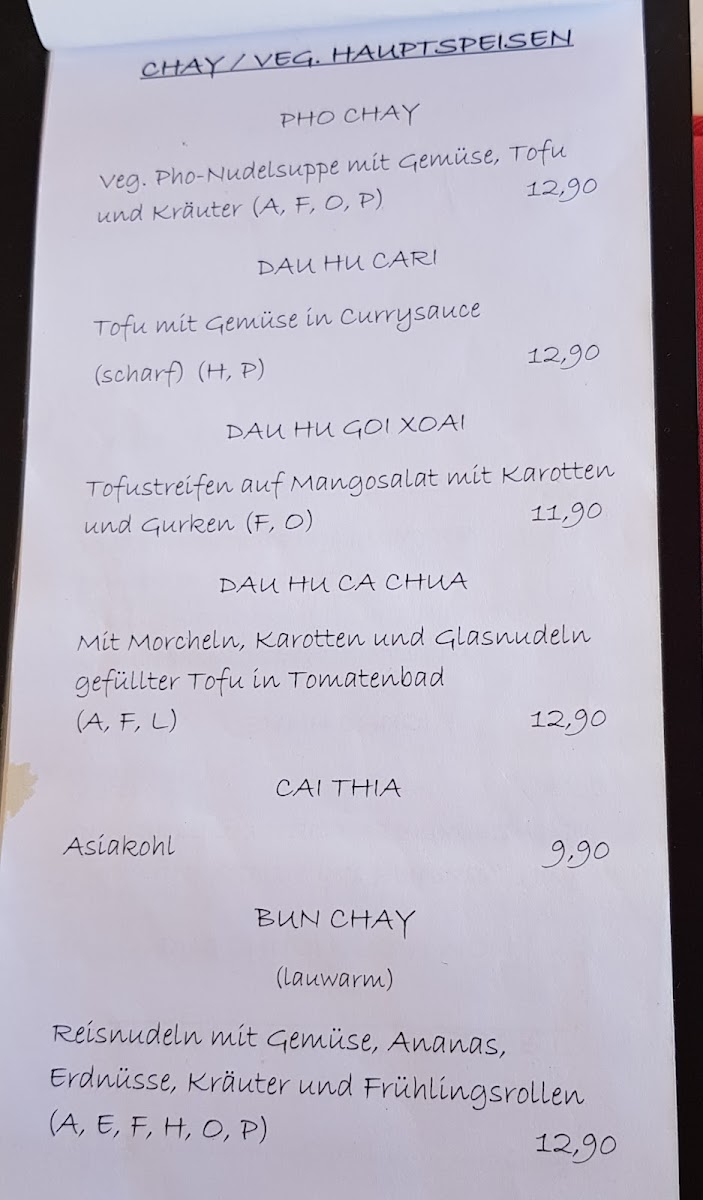 CHAY / VEG. HAUPTSPEISEN
PHO CHAY
Veg. Pho-Nudelsuppe mit Gemüse, Tofu
und Kräuter (A, F, O, P) 12,90
DAU HU CARI
Tofu mit Gemüse in Currysauce
(scharf) (H, P) 12,90
DAU HU GOI XOAI
Tofustreifen auf Mangosalat mit Karotten
und Gurken (F, O) 11,90
DAU HU CA CHUA
Mit Morcheln, Karotten und Glasnudeln
gefüllter Tofu in Tomatenbad
(A, F, L) 12,90
CAI THIA
Asiakohl 9,90
BUN CHAY
(lauwarm)
Reisnudeln mit Gemüse, Ananas,
Erdnüsse, Kräuter und Frühlingsrollen
(A, E, F, H, O, P) 12,90